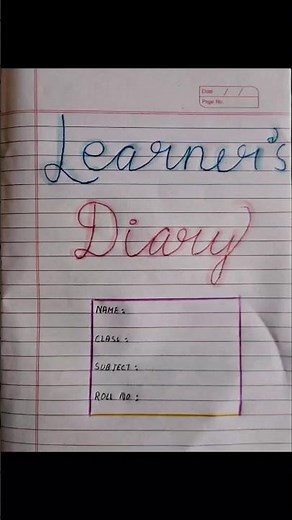 Date / /
Page No.
Learner's
Diary
NAME:
CLASS:
SUBJECT:
ROLL NO: